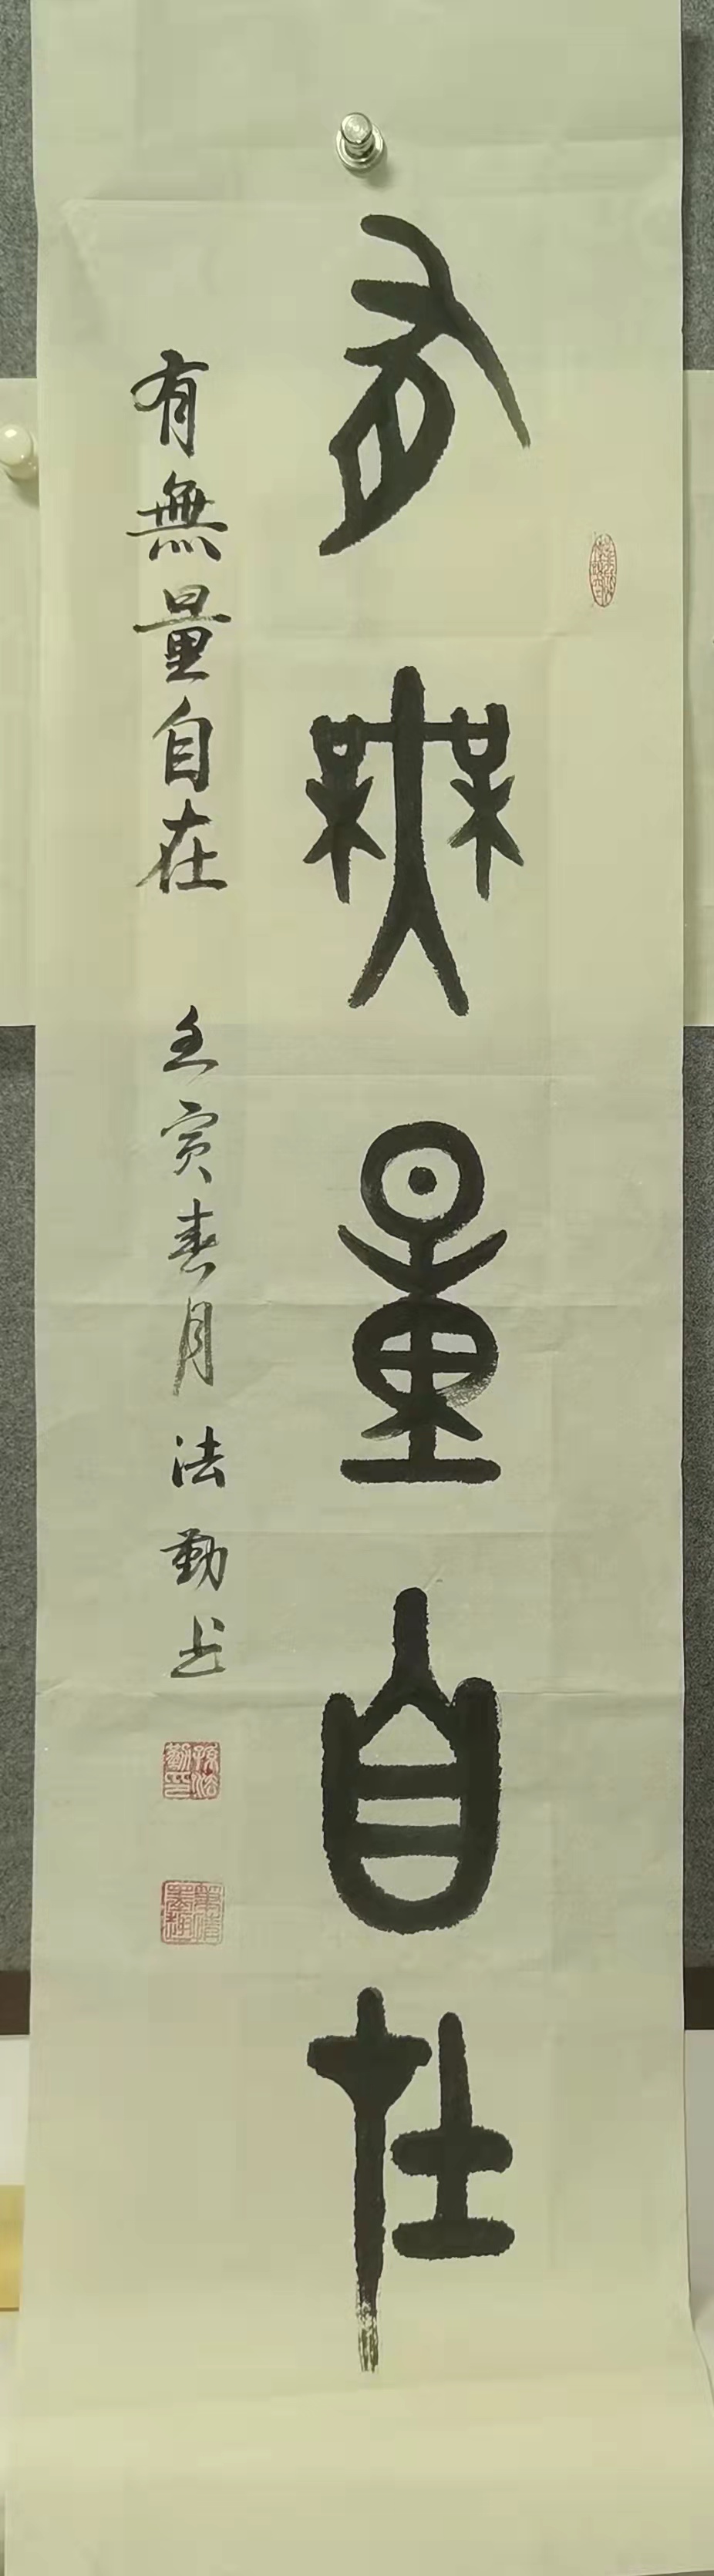 有無量自在
有無量自在 壬寅春月 法勤书